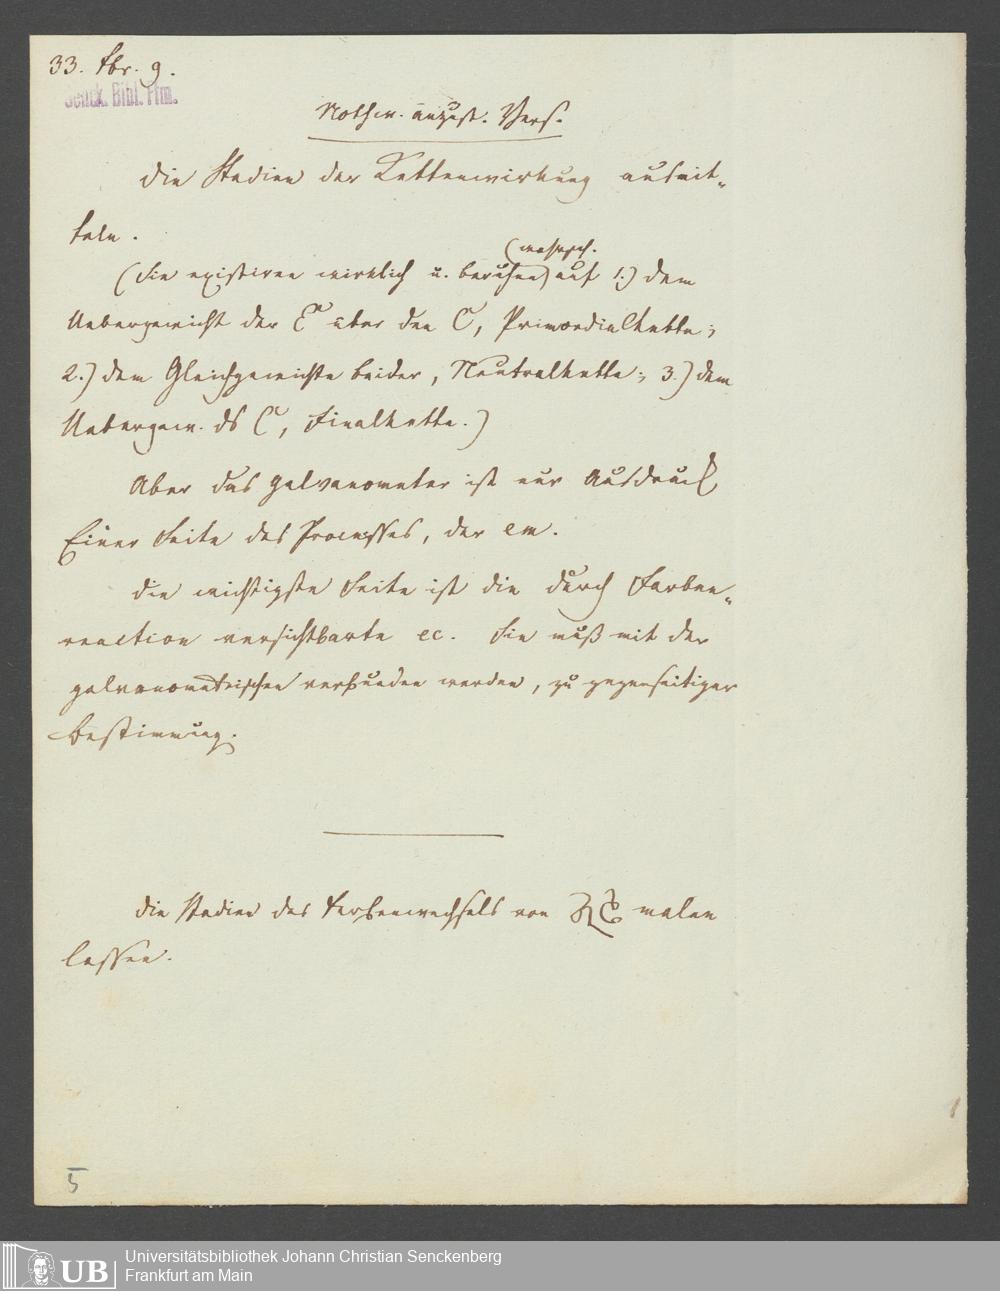 33. Fbr. 9.
Senck. Bibl. Ffm.
Nothw. anzust. Vers.
Die Stadien der Kettenwirkung ausmit-
teln.
(wahrsch.
(Sie existiren wirklich u. beruhen) auf 1.) dem
Uebergewicht der E über den C, Primordialkette;
2.) dem Gleichgewichte beider, Neutralkette; 3.) dem
Uebergew. ds C, Finalkette.)
Aber das Galvanometer ist nur Ausdruck
Einer Seite des Processes, der em.
Die wichtigste Seite ist die durch Farben-
reaction versichtbarte ec. Sie muß mit der
galvanometrischen verbunden werden, zu gegenseitiger
Bestimmung.
Die Stadien des Farbenwechsels von malen
lassen.
5
Universitätsbibliothek Johann Christian Senckenberg
Frankfurt am Main
UB